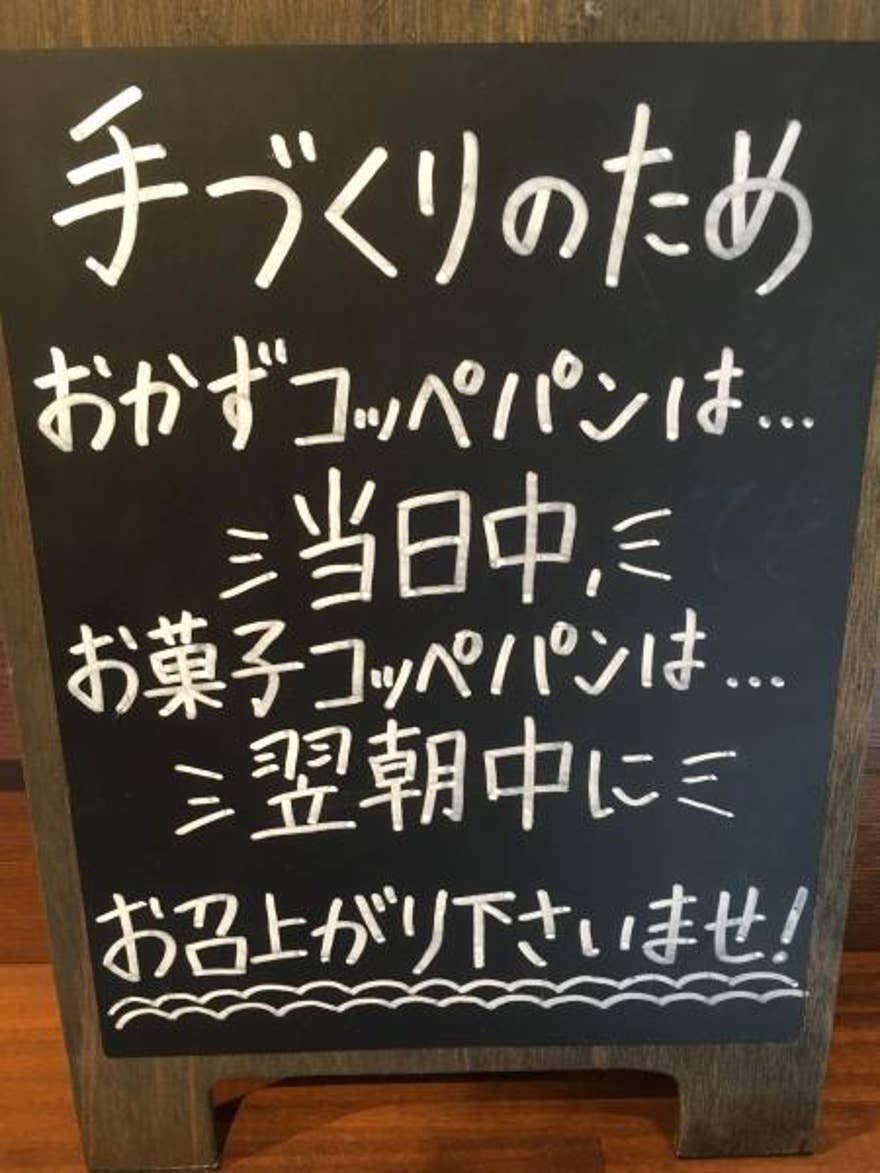 手づくりのため
おかずコッペパンは…
当日中、
お菓子コッペパンは…
翌朝中に
お召上がり下さいませ!